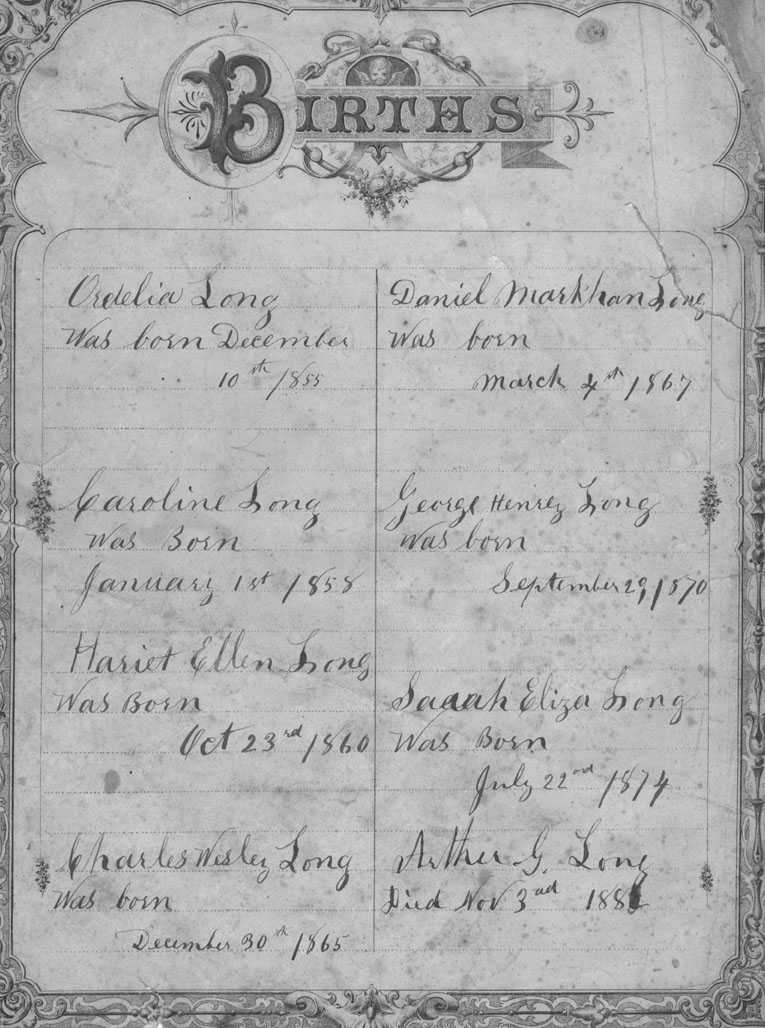 BIRTHS
Ordelia Long
Was born December
10th 1855
Caroline Long
Was Born
January 1st 1858
Hariet Ellen Long
Was Born
Oct 23rd 1860
Charles Wesley Long
Was born
December 30th 1865
Daniel Markhan Long
Was born
March 4th 1867
George Henrey Long
Was born
September 29, 1870
Saaah Eliza Long
Was Born
July 22nd 1874
Arther G. Long
Died Nov 3ad